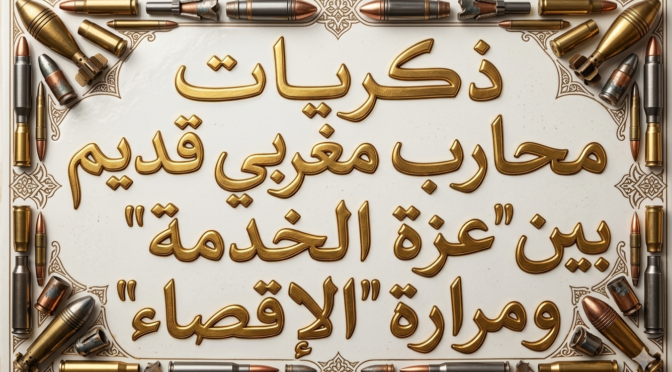 ذكريات
محارب مغربي قديم
بين "عزة الخدمة"
ومرارة "الإقصاء"